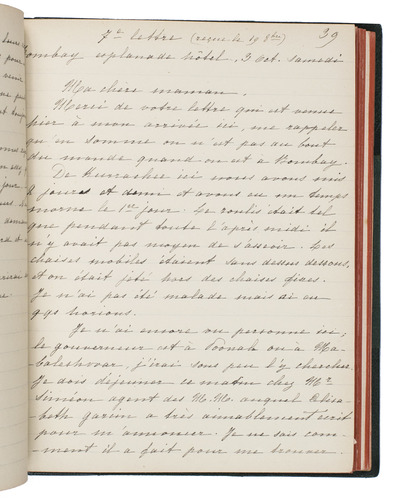 7e lettre (reçue le 19 8bre) 39
Bombay esplanade hôtel. 3 Oct. samedi
Ma chère maman.
Merci de votre lettre qui est venue
hier à mon arrivée ici, me rappeler
qu'en somme on n'est pas au bout
du monde quand on est à Bombay.
De Kurrachee ici nous avons mis
2 jours et demi et avons eu un temps
morne le 1er jour. Le roulis était tel
que pendant toute l'après midi il
n'y avait pas moyen de s'asseoir. Les
chaises mobiles étaient sans dessus dessous,
et on était jeté hors des chaises fixes.
Je n'ai pas été malade mais ai eu
qqs horions.
Je n'ai encore vu personne ici;
le gouverneur est à Poonah ou à Ma-
baleshwar, j'irai sous peu l'y chercher.
Je dois déjeuner ce matin chez Mr
Siméon agent des M.M. auquel Elisa-
beth a très aimablement écrit
pour m'annoncer. Je ne sais com-
ment il a fait pour me trouver